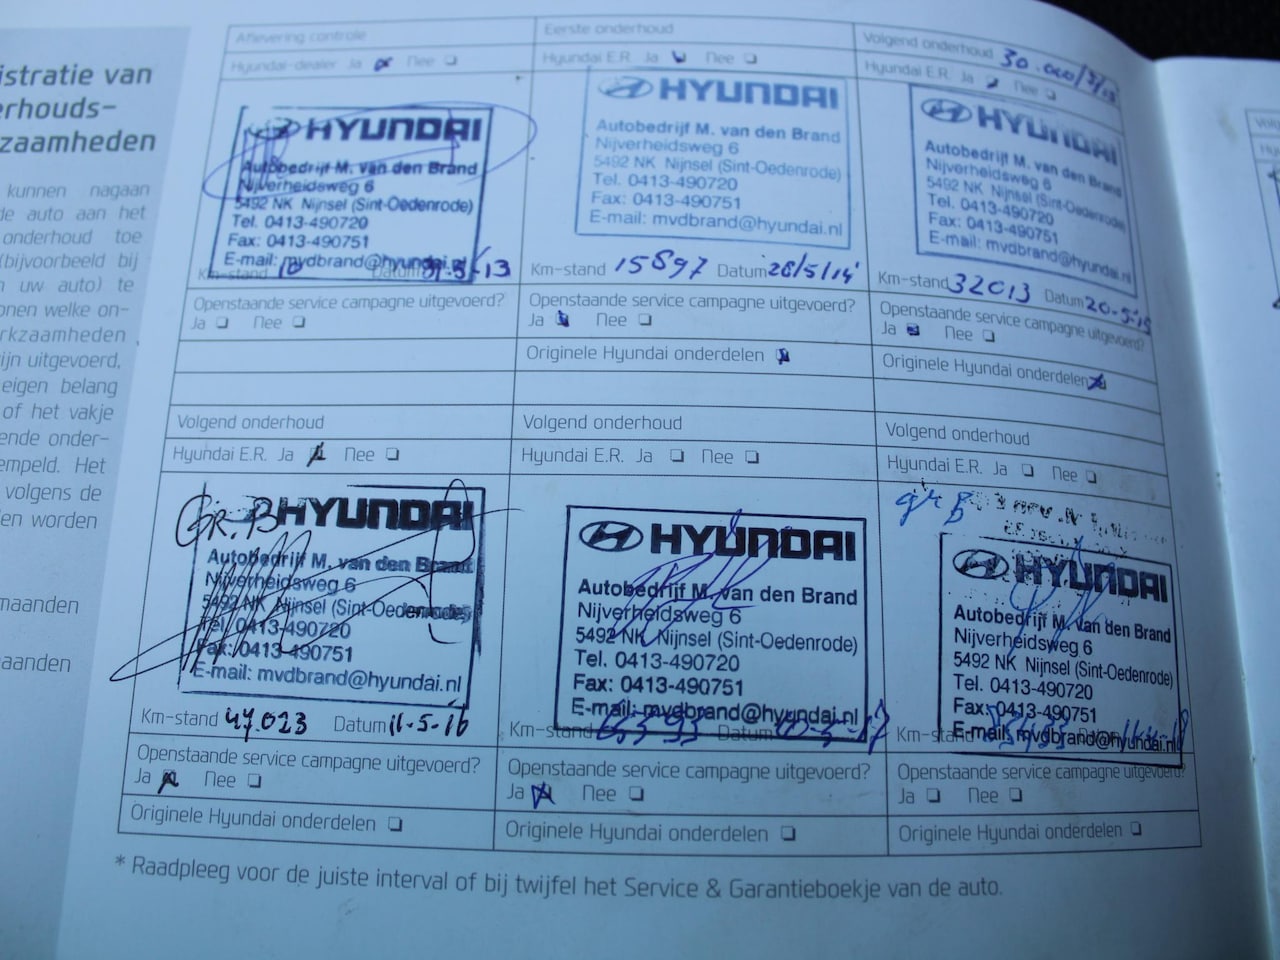 istratie van
erhouds-
zaamheden
kunnen nagaan
de auto aan het
onderhoud toe
(bijvoorbeeld bij
n uw auto) te
onen welke on-
rkzaamheden
ijn uitgevoerd,
eigen belang
of het vakje
ende onder-
empeld. Het
volgens de
len worden
maanden
aanden
Aflevering controle
Hyundai-dealer Ja Nee
HYUNDAI
Autobedrijf M. van den Brand
Nijverheidsweg 6
5492 NK Nijnsel (Sint-Oedenrode)
Tel. 0413-490720
Fax: 0413-490751
E-mail: mvdbrand@hyundai.nl
Km-stand 10 Datum
Openstaande service campagne uitgevoerd?
Ja Nee
Eerste onderhoud
Hyundai E.R. Ja Nee
HYUNDAI
Autobedrijf M. van den Brand
Nijverheidsweg 6
5492 NK Nijnsel (Sint-Oedenrode)
Tel. 0413-490720
Fax: 0413-490751
E-mail: mvdbrand@hyundai.nl
Km-stand 15897 Datum 28/5/14
Openstaande service campagne uitgevoerd?
Ja Nee
Originele Hyundai onderdelen
Volgend onderhoud 30.000
Hyundai E.R. Ja Nee
HYUNDAI
Autobedrijf M. van den Brand
Nijverheidsweg 6
5492 NK Nijnsel (Sint-Oedenrode)
Tel. 0413-490720
Fax: 0413-490751
E-mail: mvdbrand@hyundai.nl
Km-stand 32013 Datum 20-5-15
Openstaande service campagne uitgevoerd?
Ja Nee
Originele Hyundai onderdelen
Volgend onderhoud
Hyundai E.R. Ja Nee
Gr. B
HYUNDAI
Autobedrijf M. van den Brand
Nijverheidsweg 6
5492 NK Nijnsel (Sint-Oedenrode)
Tel. 0413-490720
Fax: 0413-490751
E-mail: mvdbrand@hyundai.nl
Km-stand 47.023 Datum 11-5-16
Openstaande service campagne uitgevoerd?
Ja Nee
Originele Hyundai onderdelen
Volgend onderhoud
Hyundai E.R. Ja Nee
HYUNDAI
Autobedrijf M. van den Brand
Nijverheidsweg 6
5492 NK Nijnsel (Sint-Oedenrode)
Tel. 0413-490720
Fax: 0413-490751
E-mail: mvdbrand@hyundai.nl
Km-stand Datum
Openstaande service campagne uitgevoerd?
Ja Nee
Originele Hyundai onderdelen
Volgend onderhoud
Hyundai E.R. Ja Nee
gr B
HYUNDAI
Autobedrijf M. van den Brand
Nijverheidsweg 6
5492 NK Nijnsel (Sint-Oedenrode)
Tel. 0413-490720
Fax: 0413-490751
E-mail: mvdbrand@hyundai.nl
Km-stand
Openstaande service campagne uitgevoerd?
Ja Nee
Originele Hyundai onderdelen
* Raadpleeg voor de juiste interval of bij twijfel het Service & Garantieboekje van de auto.